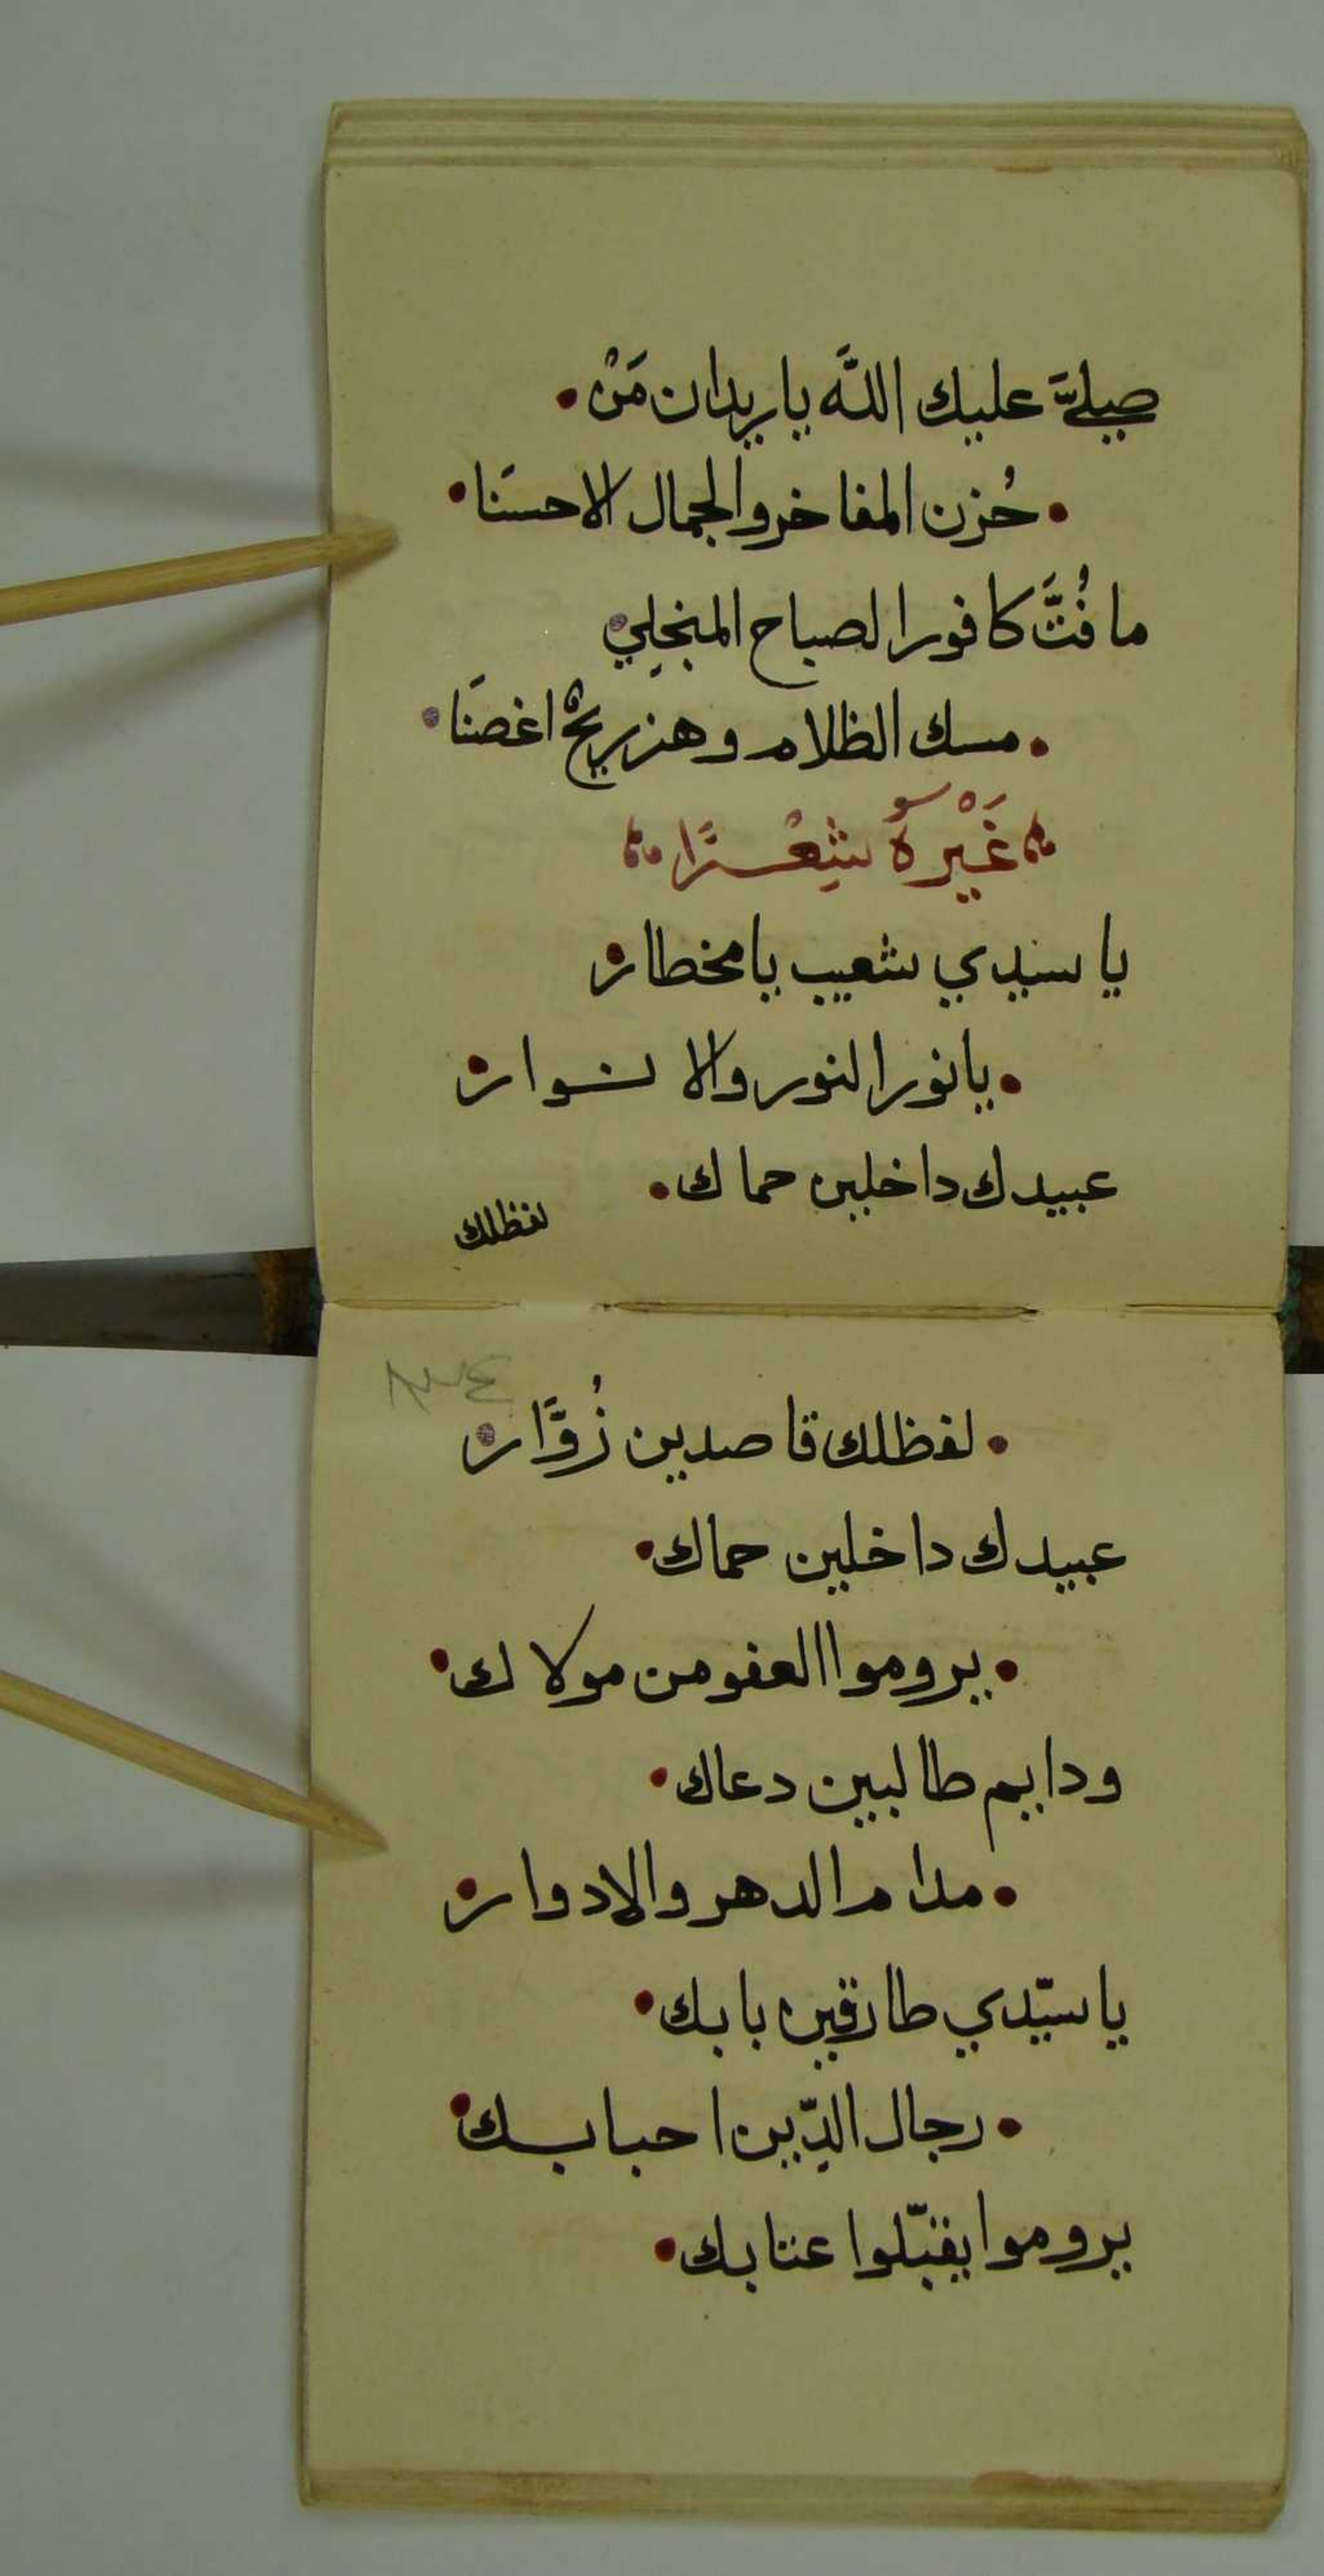 صلىَّ عليك اللَّه يا ريدان مَنْ
حُزن المفاخر والجمال الاحسنَا
ما فُتَّ كافور الصباح المنجلِي
مسك الظلام وهز ريحٌ اغصنَا
غَيْرهُ شِعْرًا
يا سيدي شعيب يا مخطار
يا نور النور والا نوار
عبيدك داخلين حماك
لفظلك
لفظلك قاصدين زُوَّار
عبيدك داخلين حماك
يروموا العفو من مولاك
ودايم طالبين دعاك
مدام الدهر والادوار
يا سيّدي طارقين بابك
رجال الدّين احبابك
يروموا يقبّلوا عتابك